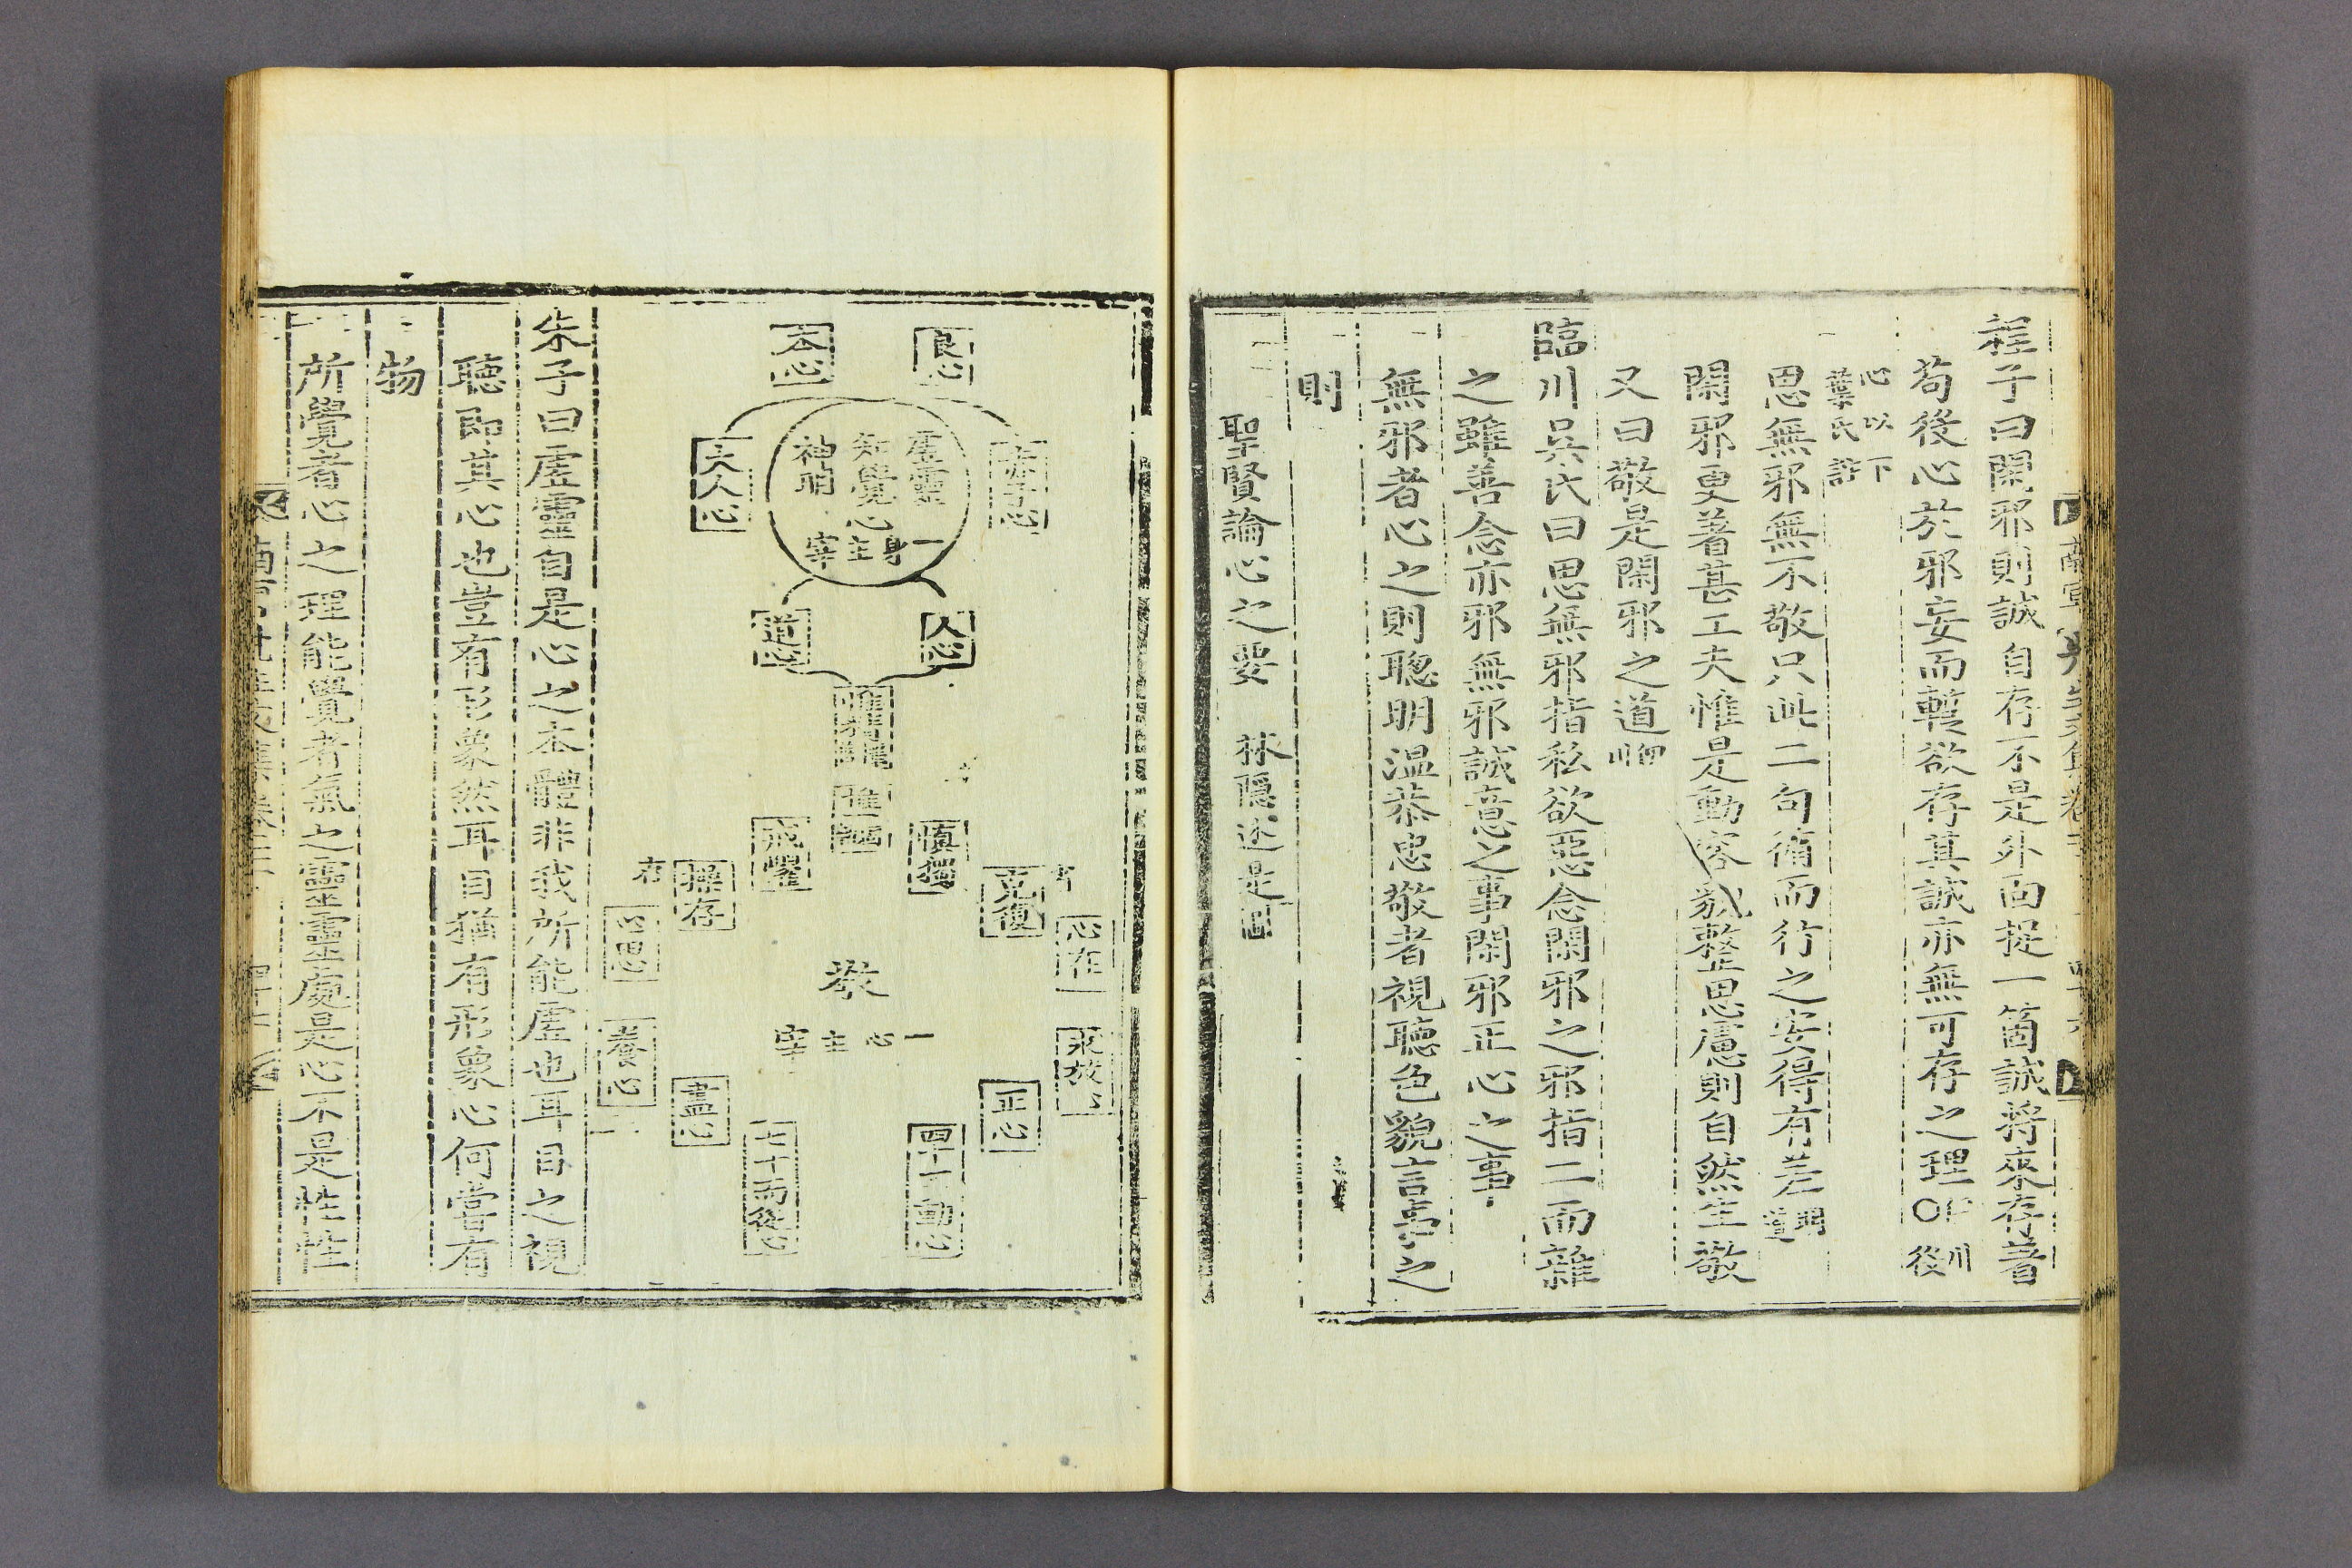 程子曰閑邪則誠自存不是外面捉一箇誠將來存着
苟後心於邪妄而暫欲存其誠亦無可存之理○
後
心以下
葉氏註
思無邪無不敬只此二句循而行之安得有差
閑邪更着甚工夫惟是動容貌整思慮則自然生敬
又曰敬是閑邪之道
臨川吳氏曰思無邪指私欲惡念閑邪之邪指二而雜
之雖善念亦邪無邪誠意之事閑邪正心之事
無邪者心之則聰明溫恭忠敬者視聽色貌言事之
則
聖賢論心之要 林隱 是圖
良心
本心
赤子心
大人心
虛靈
知覺
神明
心
一身主宰
人心
道心
惟精
惟一
愼獨
戒懼
克復
操存
心在
心思
敬
一心主宰
求放心
養心
正心
盡心
四十不動心
七十而從心
朱子曰虛靈自是心之本體非我所能虛也耳目之視
聽即其心也豈有形象然耳目猶有形象心何嘗有
物
所覺者心之理能覺者氣之靈靈處是心不是性性